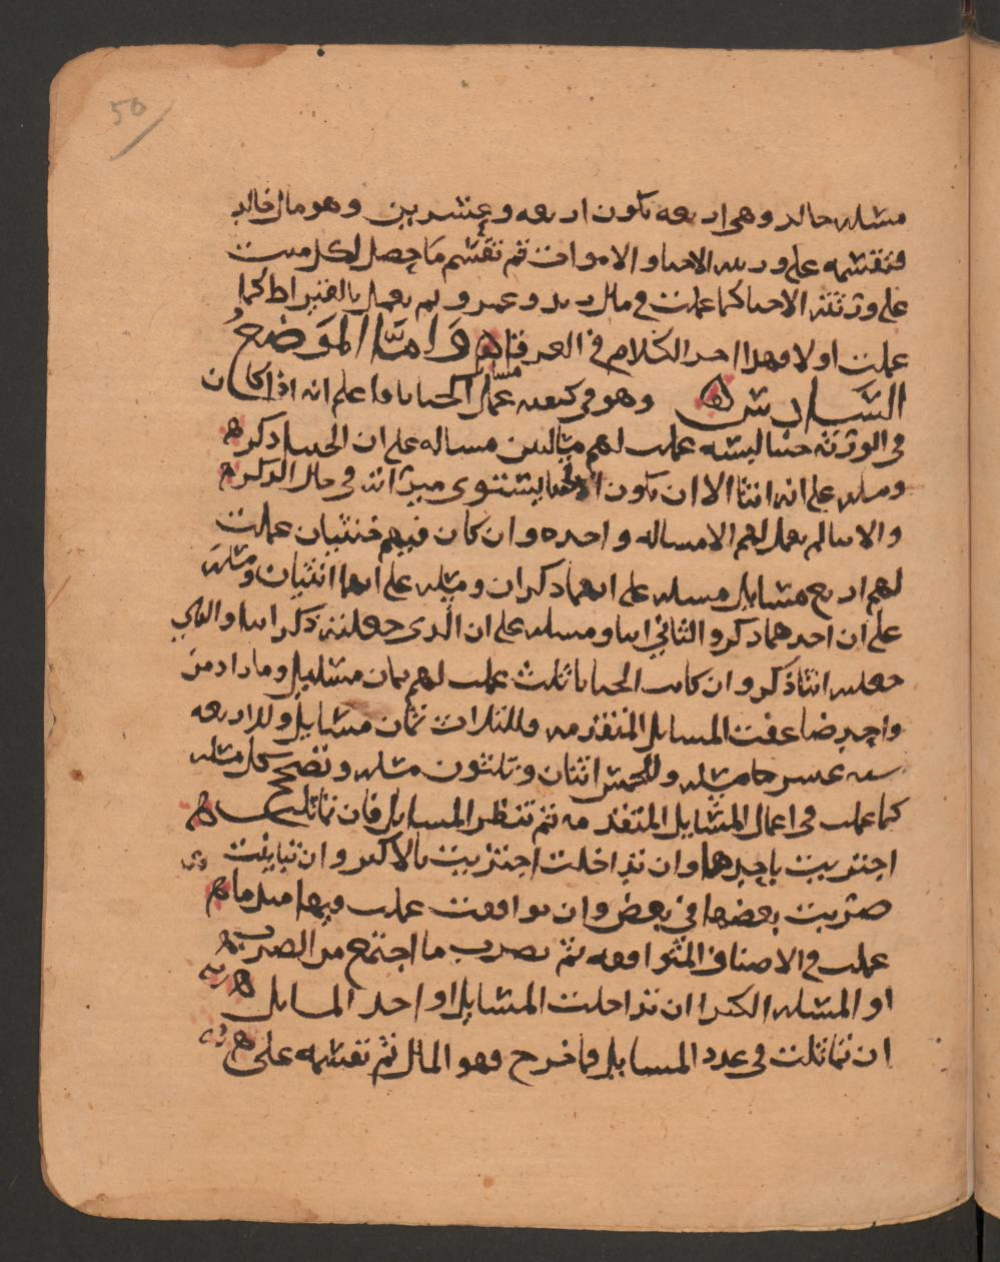 50
مسله خالد وهي اربعه تكون اربعه وعشرين وهو مال خالد
فتقسمه على ورثته الاحياء والاموات ثم تقسم ما حصل لكل ميت
على ورثته الاحيا كما عملت في مال زيد وعمرو ثم تعمل بالقيراط كما
عملت اولا وهذا احد الكلام في الغرقا واما الموضع
السادس وهو في كيفيه عمل مسايل الخناثا فاعلم انه اذا كان
في الورثه خنثا لبسه عملت لهم مثالين مساله على ان الخنثا ذكر
ومسله على انه انثا الا ان يكون الخنثا يستوي ميراثه في حال الذكر
والانثا لم يعمل لهم الا مساله واحده وان كان فيهم خنثيان عملت
لهم اربع مسايل مسله على انهما ذكران ومسله على انهما انثيان ومسله
على ان احدهما ذكر والثاني انثا ومسله على ان الذي جعلته ذكر انثا والذي
جعلته انثا ذكر وان كانت الخناثا ثلث عملت لهم ثمان مسايل وما زاد من
واحد ضاعفت المسايل المتقدمه وللثلاث ثمان مسايل وللاربعه
سته عشر مسله وللخمس اثنان وثلثون مسله وتصحح كل مسله
كما عملت في اعمال المسايل المتقدمه ثم تنظر المسايل فان تماثلت
اجتزيت باحدهما وان تداخلت اجتزيت بالاكبر وان تباينت
ضربت بعضها في بعض وان توافقت عملت فيها مثل ما
عملت في الاصناف المتوافقه ثم تضرب ما اجتمع من الضرب
او المسله الكبرا ان تداخلت المسايل او احد المسايل
ان تماثلت في عدد المسايل فما خرج فهو المال ثم تقسمه على